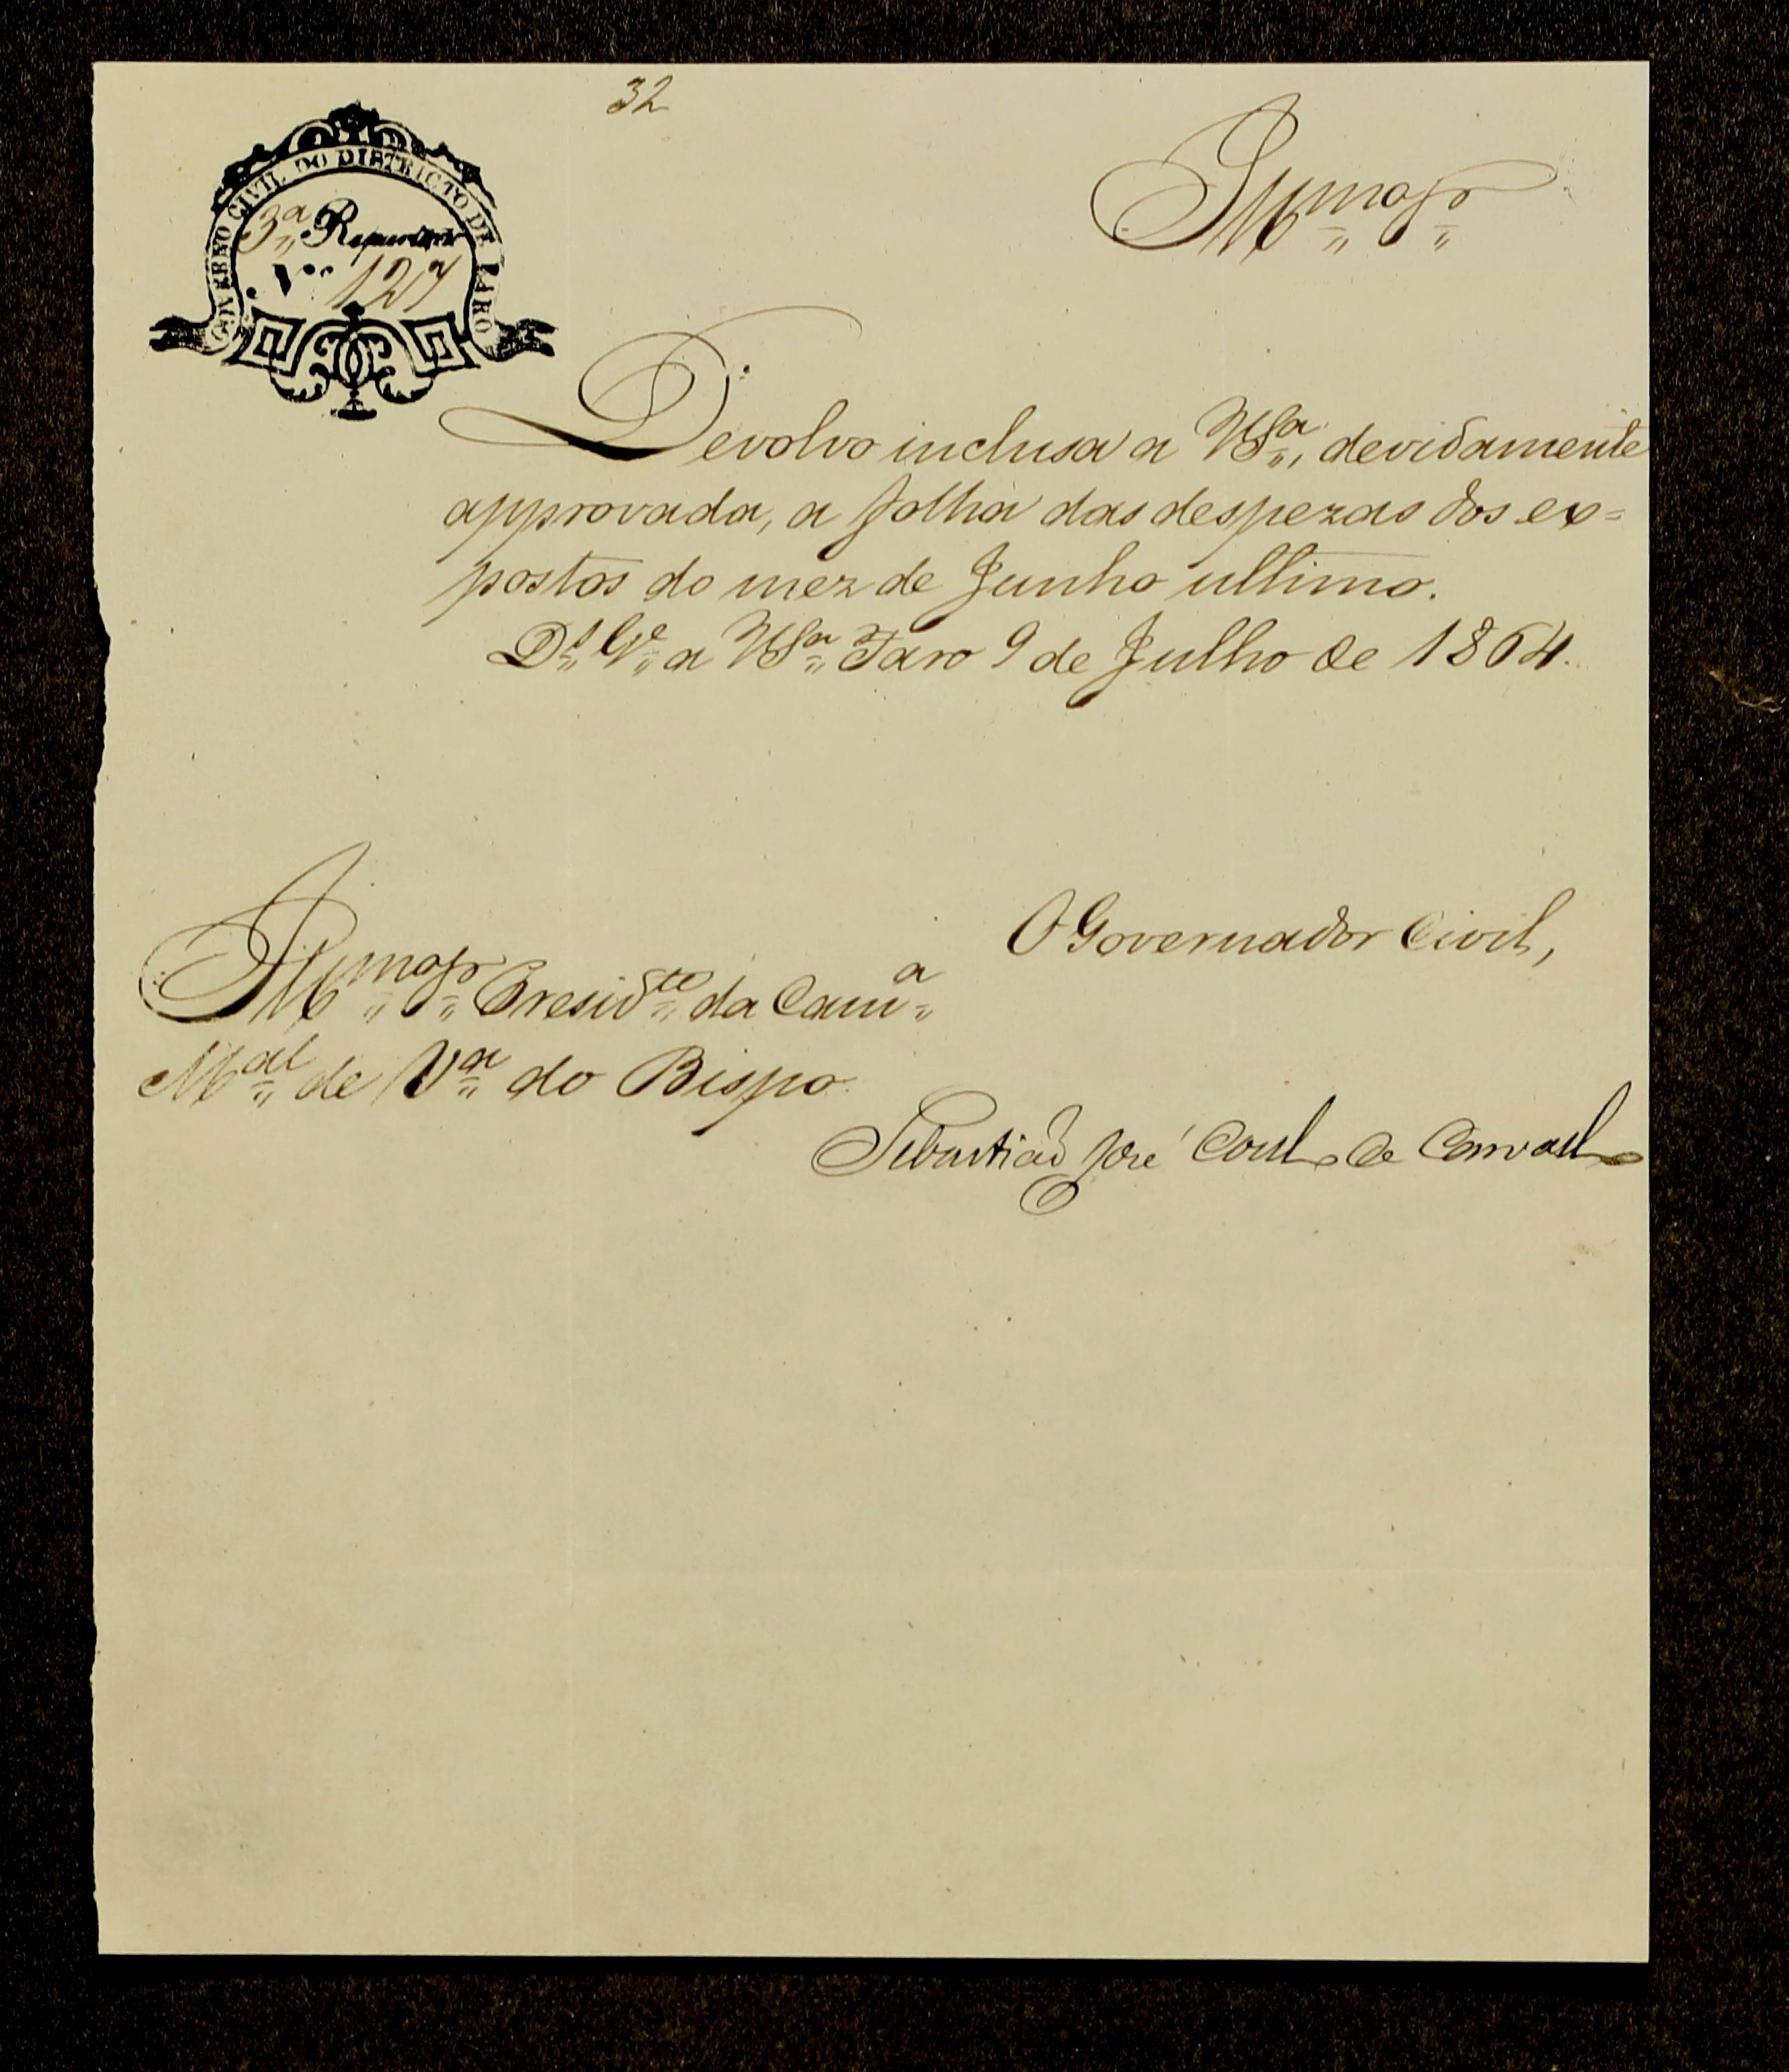 32
GOVERNO CIVIL DO DISTRICTO DE FARO
3ª Repartição
Nº 127
Illmo Sr
Devolvo inclusa a VSª, devidamente
approvada, a folha das despezas dos ex=
postos do mez de Junho ultimo.
Ds Ge a VSª Faro 9 de Julho de 1864.
O Governador Civil,
Illmo Sr Presidte da Camª
Mal de Vª do Bispo
Sebastião José Coelho de Carvalho